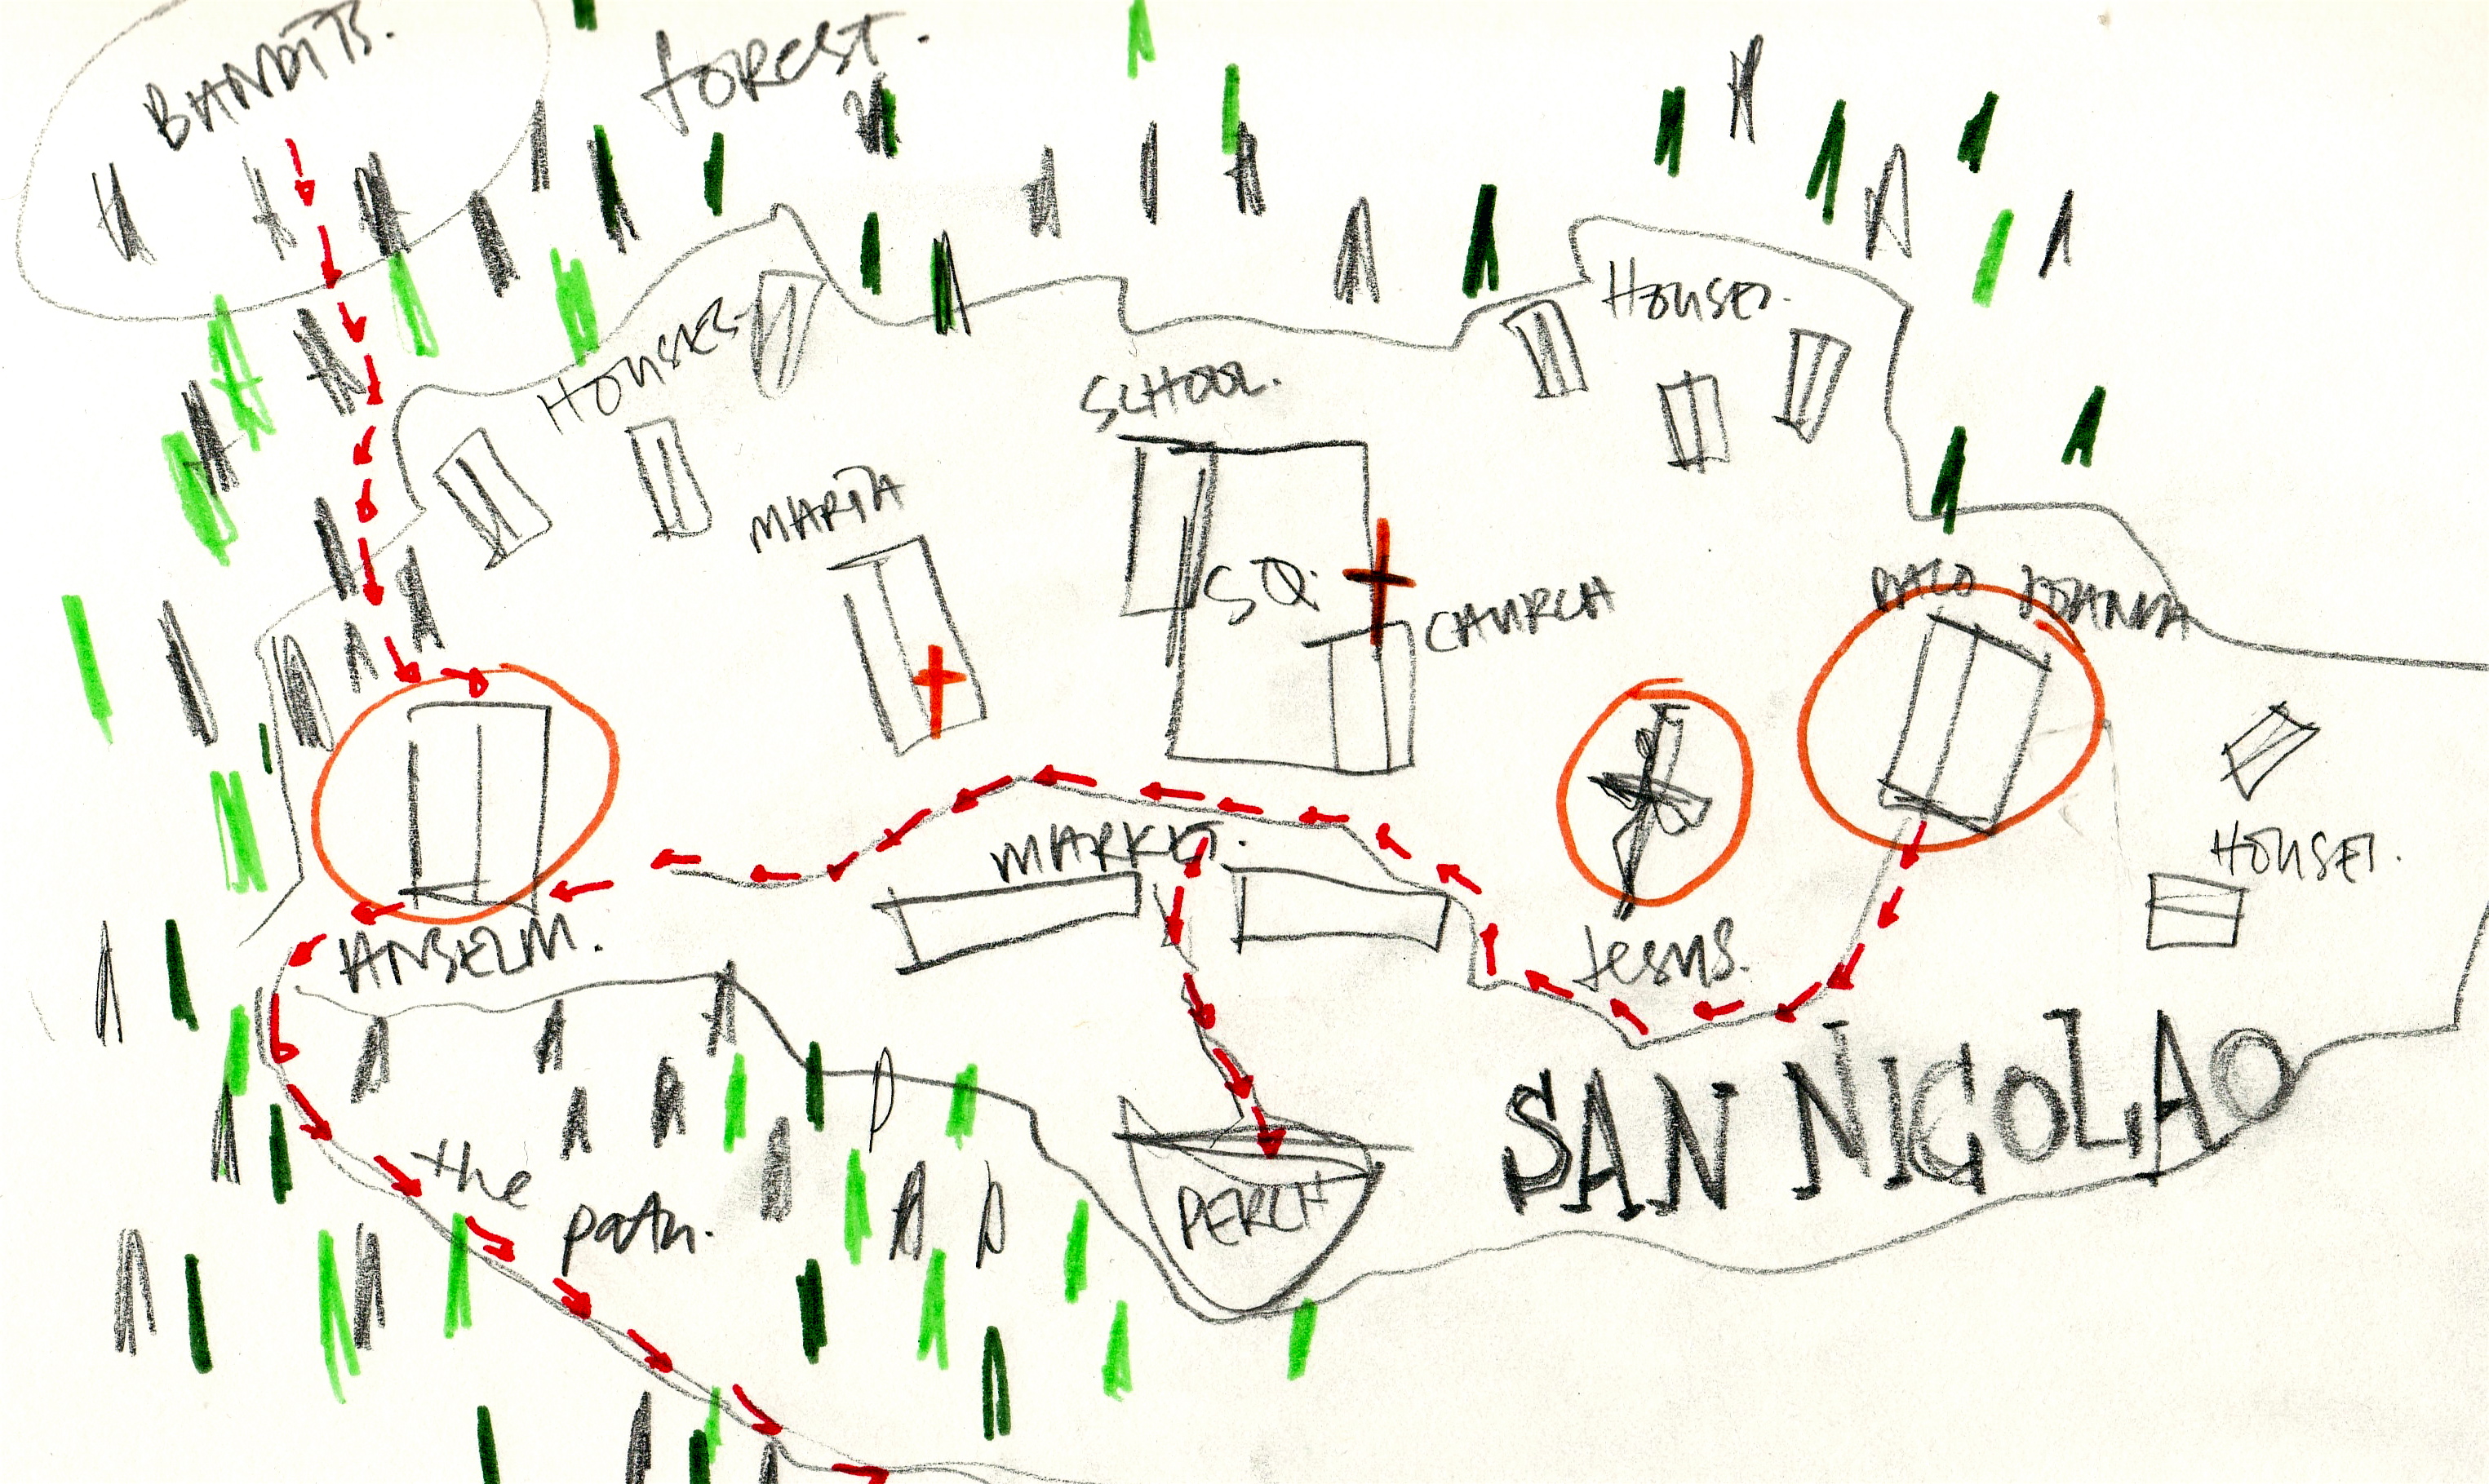 BANDITS.
forest.
HOUSES
HOUSES.
SCHOOL.
MARTA
SQ.
CHURCH
MARKET.
ANSELM.
Jesus.
HOUSES.
SAN NICOLAO
the
path.
PERCH